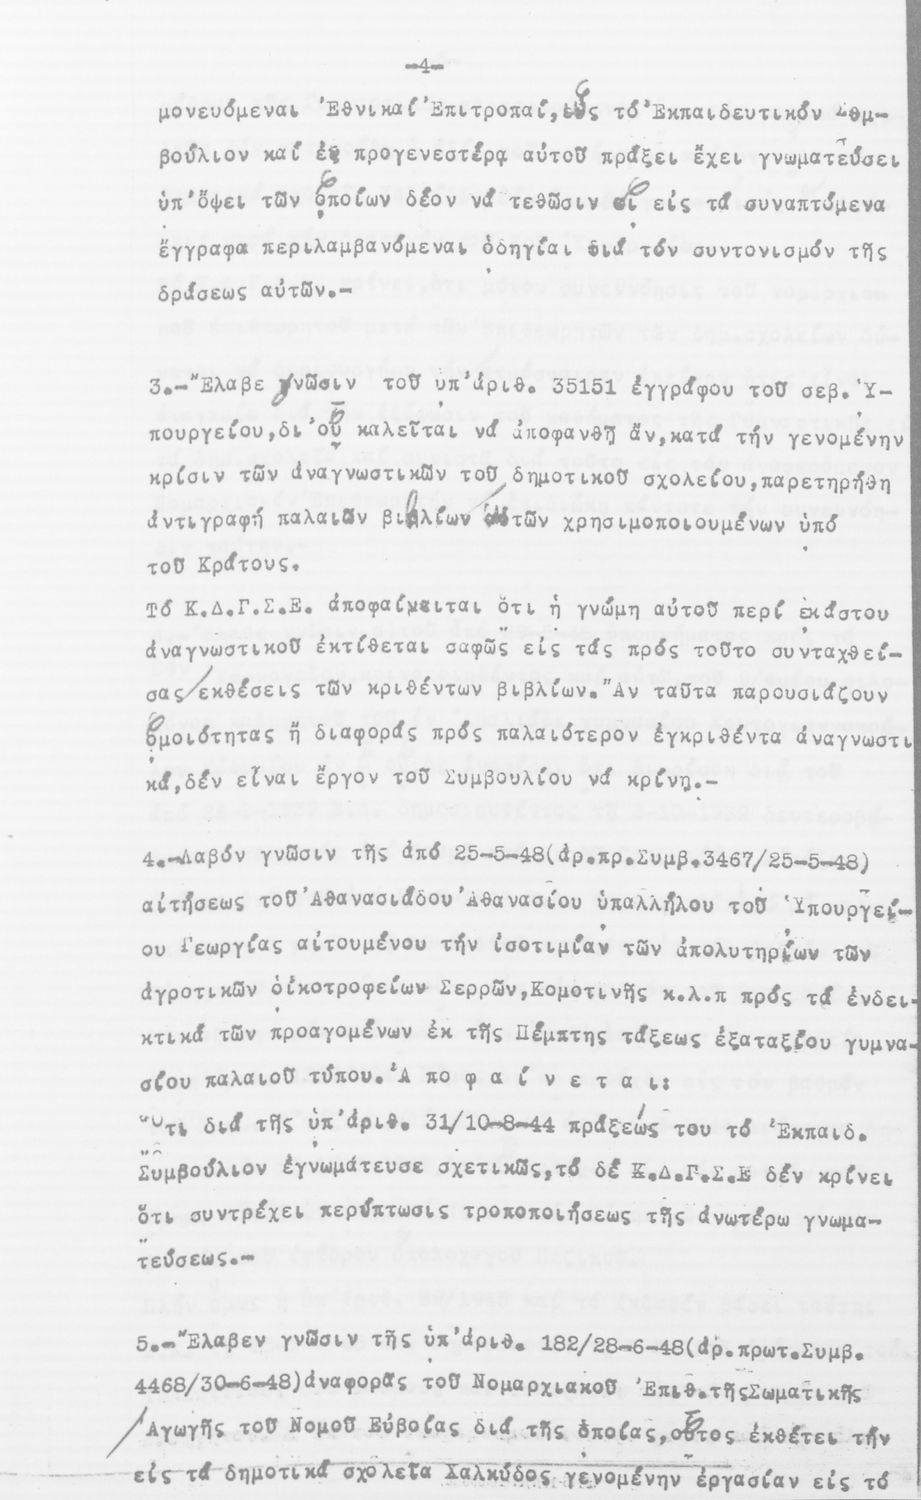 -4-
μονευόμεναι Ἐθνικαί Ἐπιτροπαί, ὡς τό Ἐκπαιδευτικόν Συμ-
βούλιον καί ἐν προγενεστέρᾳ αὐτοῦ πράξει ἔχει γνωματεύσει
ὑπ' ὄψει τῶν ὁποίων δέον νά τεθῶσιν αἱ εἰς τά συναπτόμενα
ἔγγραφα περιλαμβανόμεναι ὁδηγίαι διά τόν συντονισμόν τῆς
δράσεως αὐτῶν.-
3.-Ἔλαβε γνῶσιν τοῦ ὑπ' ἀριθ. 35151 ἐγγράφου τοῦ σεβ. Ὑ-
πουργείου, δι' οὗ καλεῖται νά ἀποφανθῇ ἄν, κατά τήν γενομένην
κρίσιν τῶν ἀναγνωστικῶν τοῦ δημοτικοῦ σχολείου, παρετηρήθη
ἀντιγραφή παλαιῶν βιβλίων τῶν χρησιμοποιουμένων ὑπό
τοῦ Κράτους.
Τό Κ.Δ.Γ.Σ.Ε. ἀποφαίνεται ὅτι ἡ γνώμη αὐτοῦ περί ἑκάστου
ἀναγνωστικοῦ ἐκτίθεται σαφῶς εἰς τάς πρός τοῦτο συνταχθεί-
σας ἐκθέσεις τῶν κριθέντων βιβλίων. Ἄν ταῦτα παρουσιάζουν
ὁμοιότητας ἤ διαφοράς πρός παλαιότερον ἐγκριθέντα ἀναγνωστι
κά, δέν εἶναι ἔργον τοῦ Συμβουλίου νά κρίνῃ.-
4.-Λαβόν γνῶσιν τῆς ἀπό 25-5-48(ἀρ.πρ.Συμβ.3467/25-5-48)
αἰτήσεως τοῦ Ἀθανασιάδου Ἀθανασίου ὑπαλλήλου τοῦ Ὑπουργεί-
ου Γεωργίας αἰτουμένου τήν ἰσοτιμίαν τῶν ἀπολυτηρίων τῶν
ἀγροτικῶν οἰκοτροφείων Σερρῶν, Κομοτινῆς κ.λ.π πρός τά ἐνδει-
κτικά τῶν προαγομένων ἐκ τῆς Πέμπτης τάξεως ἑξαταξίου γυμνα-
σίου παλαιοῦ τύπου. Ἀ πο φ α ί ν ε τ α ι:
Ὅτι διά τῆς ὑπ' ἀριθ. 31/10-8-44 πράξεώς του τό Ἐκπαιδ.
Συμβούλιον ἐγνωμάτευσε σχετικῶς, τό δέ Κ.Δ.Γ.Σ.Ε δέν κρίνει
ὅτι συντρέχει περίπτωσις τροποποιήσεως τῆς ἀνωτέρω γνωμα-
τεύσεως.-
5.-Ἔλαβεν γνῶσιν τῆς ὑπ' ἀριθ. 182/28-6-48(ἀρ.πρωτ.Συμβ.
4468/30-6-48)ἀναφορᾶς τοῦ Νομαρχιακοῦ Ἐπιθ.τῆς Σωματικῆς
Ἀγωγῆς τοῦ Νομοῦ Εὐβοίας διά τῆς ὁποίας, οὗτος ἐκθέτει τήν
εἰς τά δημοτικά σχολεῖα Χαλκίδος γενομένην ἐργασίαν εἰς τό